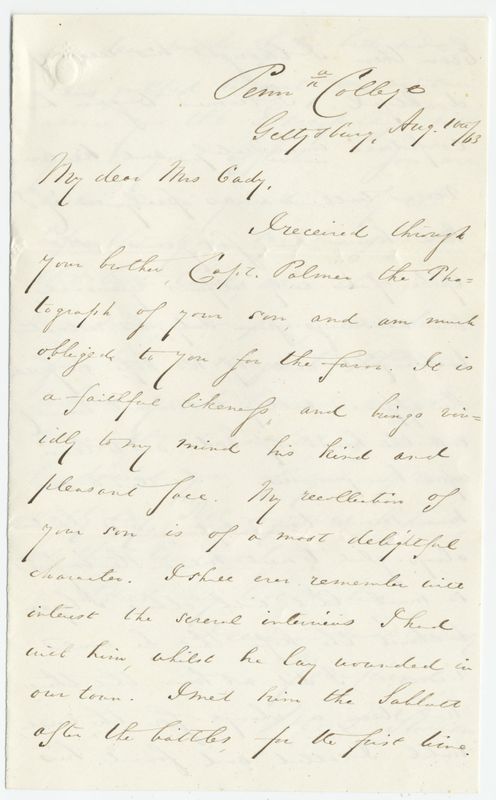 Penn^a College
Gettysburg, Aug. 10th/63
My dear Mrs Cady,
I received through
your brother, Capt. Palmer the Pho=
tograph of your son, and am much
obliged to you for the favor. It is
a faithful likeness, and brings viv=
idly to my mind his kind and
pleasant face. My recollection of
your son is of a most delightful
character. I shall ever remember with
interest the several interviews I had
with him, whilst he lay wounded in
our town. I met him the Sabbath
after the battles for the first time.